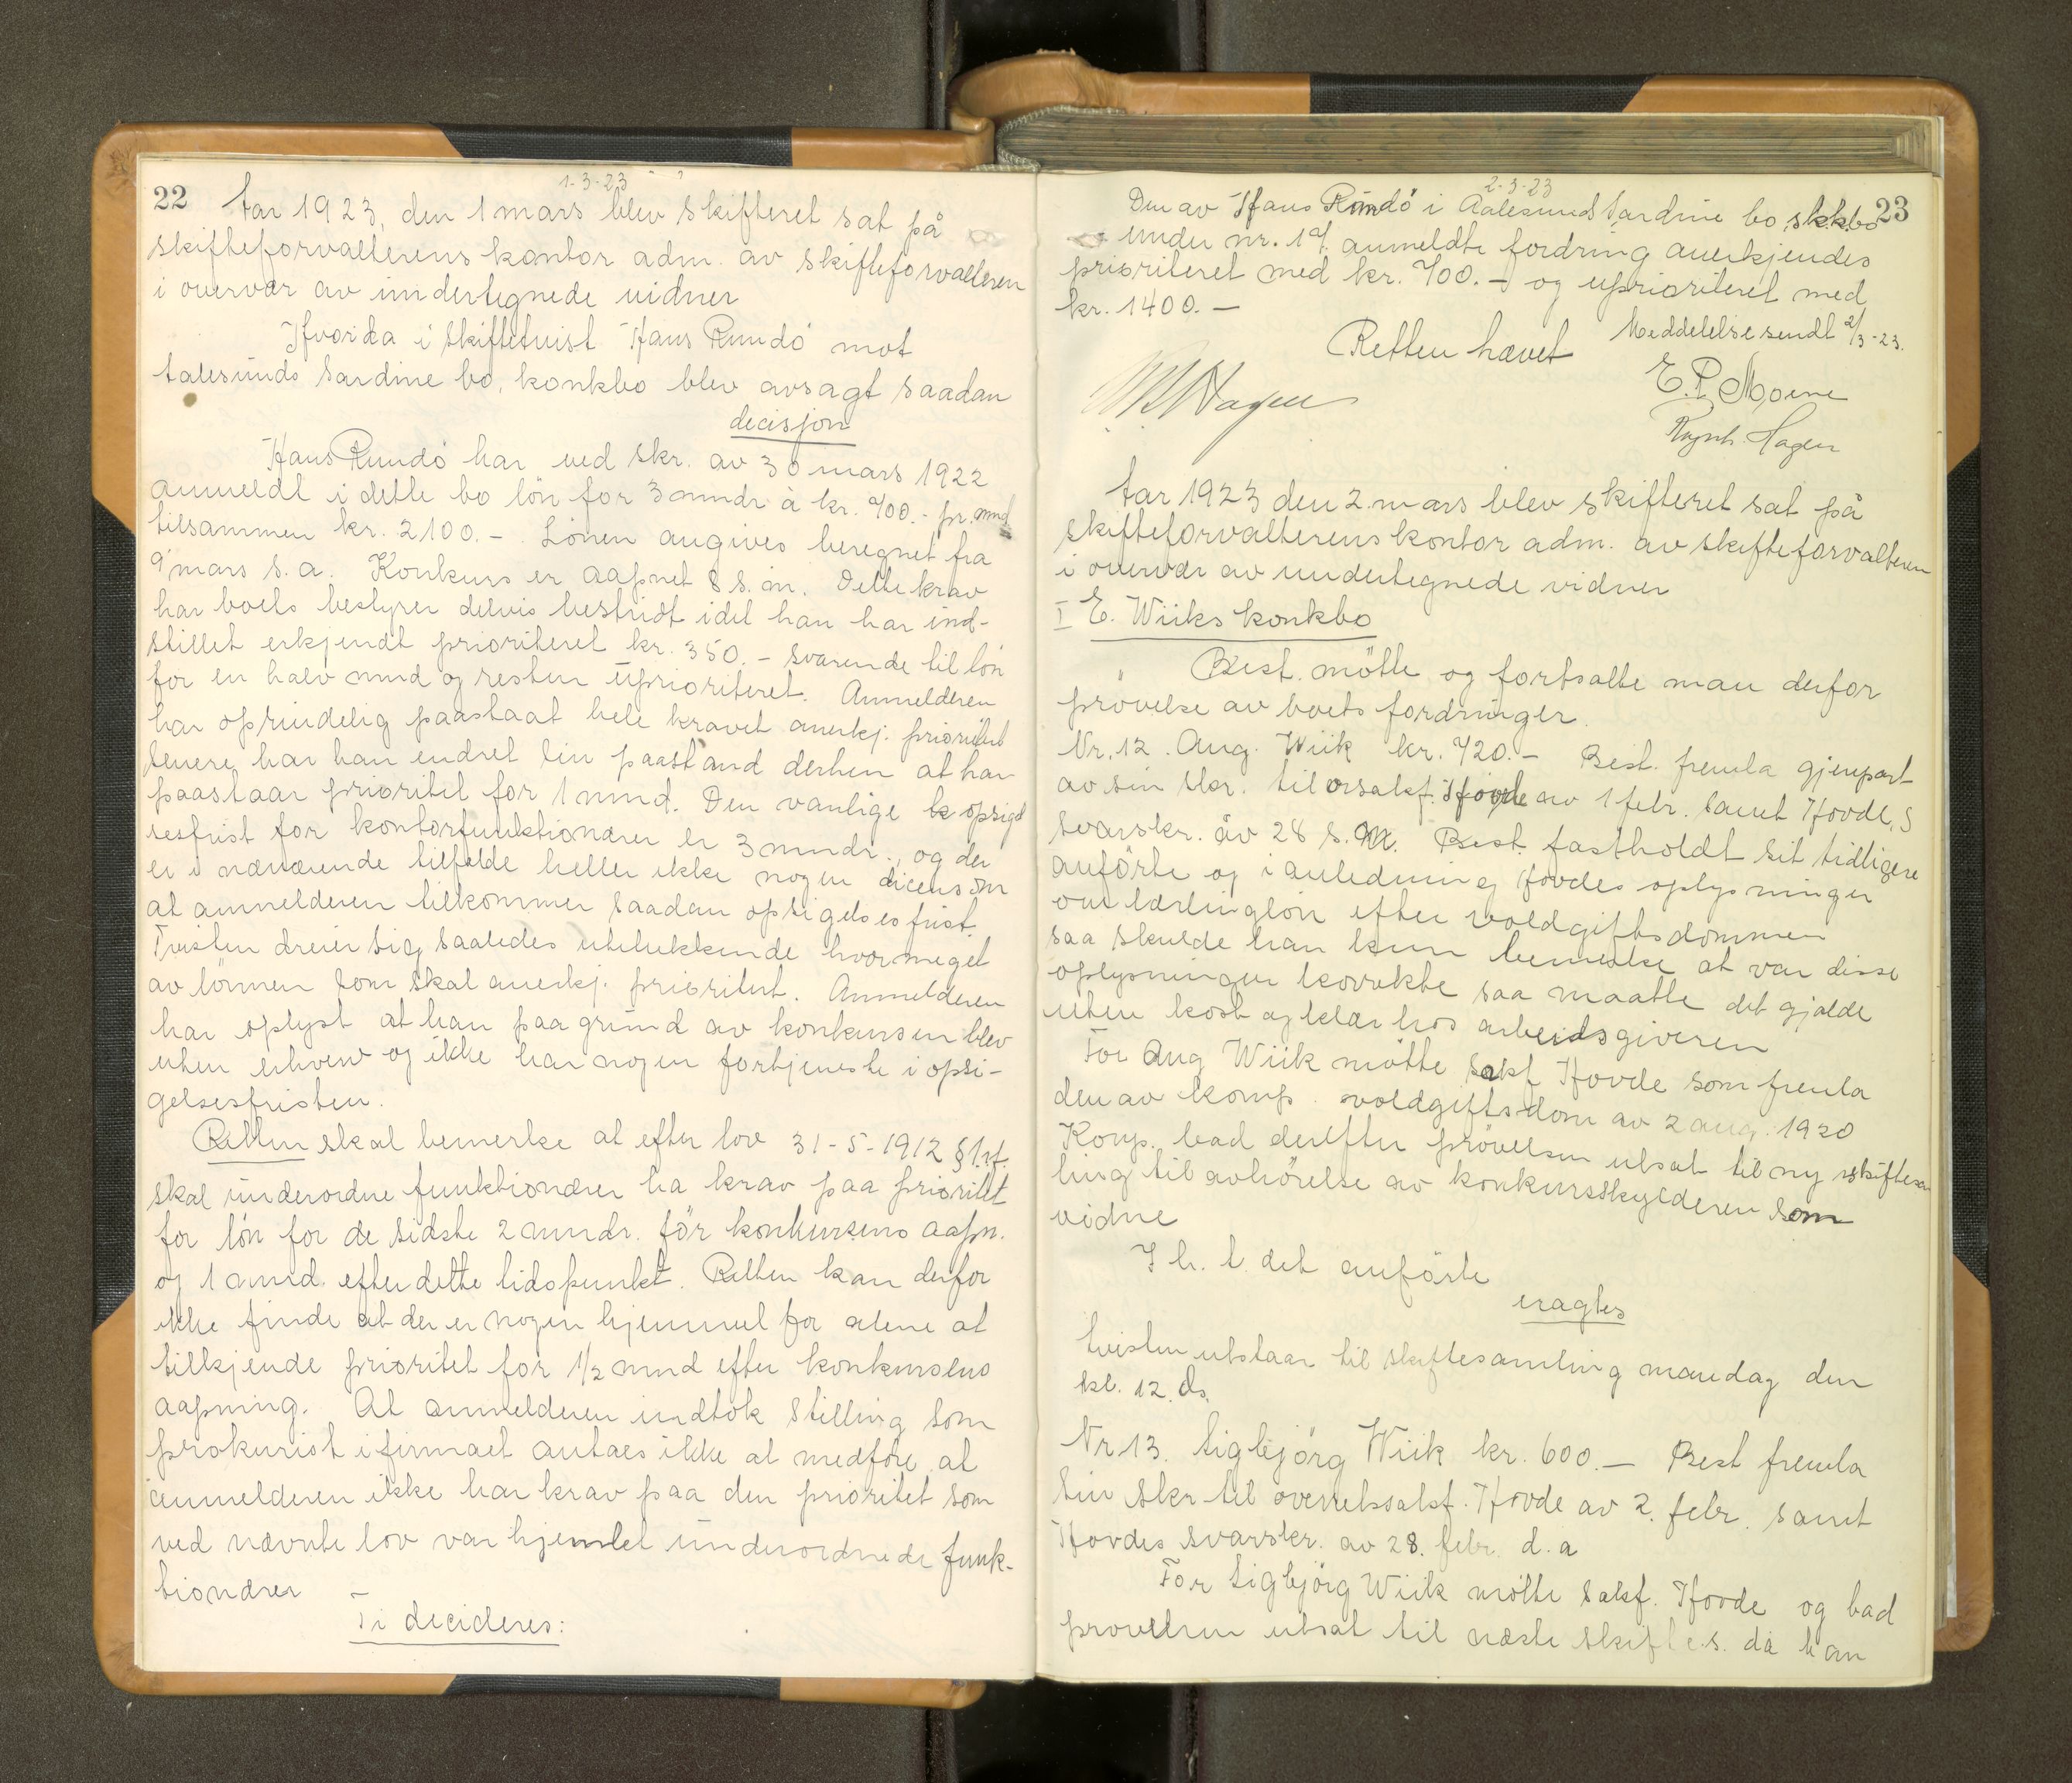 1-3-23
22
Aar 1923, den 1 mars blev skifteret sat på
skifteforvalterens kontor adm. av skifteforvalteren
i overvær av undertegnede vidner
Hvorda i skiftetvist Hans Rundö mot
Aalesunds Sardine bo, konkbo blev avsagt saadan
decisjon
Hans Rundö har ved skr. av 30 mars 1922
anmeldt i dette bo lön for 3 mndr à kr. 700.- pr. mnd
tilsammen kr. 2100.- Lönen angives beregnet fra
9 mars s.a. Konkurs er aapnet 8 s.m. Dette krav
har boets bestyrer delvis bestridt idet han har ind-
stillet erkjendt prioriteret kr. 350.- svarende til lön
for en halv mnd og resten uprioriteret. Anmelderen
har oprindelig paastaat hele kravet anerkj. prioritert
senere har han endret sin paastand derhen at han
paastaar prioritet for 1 mnd. Den vanlige opsigel
sesfrist for kontorfunktionærer er 3 mndr., og der
er i nærværende tilfælde heller ikke nogen dicens om
at anmelderen tilkommer saadan opsigelsesfrist.
Tvisten dreier sig saaledes utelukkende hvormeget
av lönnen som skal anerkj. prioritert. Anmelderen
har oplyst at han paa grund av konkursen blev
uten erhverv og ikke har nogen fortjeneste i opsi-
gelsesfristen.
Retten skal bemerke at efter lov 31-5-1912 §1.
skal underordne funktionærer ha krav paa prioritet
for lön for de sidste 2 mndr. för konkursens aapn.
og 1 mnd. efter dette tidspunkt. Retten kan derfor
ikke finde at der er nogen hjemmel for alene at
tilkjende prioritet for 1/2 mnd efter konkursens
aapning. At anmelderen indtok stilling som
prokurist i firmaet antaes ikke at medföre at
anmelderen ikke har krav paa den prioritet som
ved nævnte lov var hjemlet underordnede funk-
tionærer
Ti decideres:
2-3-23
23
Den av Hans Rundö i Aalesund Sardine bo, s.k.k.bo
under nr. 19. anmeldte fordring anerkjendes
prioriteret med kr. 700.- og uprioriteret med
kr. 1400.-
Retten hævet Meddelelse sendt 2/3-23.
E. P. Moene
Hagen
Hagen
Aar 1923 den 2. mars blev skifteret sat på
skifteforvalterens kontor adm. av skifteforvalteren
i overvær av undertegnede vidner
I E. Wiiks konkbo
Best. mötte og fortsatte man derfor
prövelse av boets fordringer.
Nr. 12. Aug. Wiik kr. 720.- Best. fremla gjenpart
av sin skr. til orsakf. Hovde av 1 febr. samt Hovde,s
svarskr. av 28 s.M. Best. fastholdt sit tidligere
anförte og i anledning Hovdes oplysninger
om lærlinglön efter voldgiftsdommen
saa skulde han kun bemerke at var disse
oplysninger korrekte saa maatte det gjælde
uten kost og klær hos arbeidsgiveren
For Aug Wiik mötte sakf Hovde som fremla
den av komp. voldgiftsdom av 2 aug. 1920
Komp. bad derefter prövelsen utsat til ny skiftesam
ling til avhörelse av konkursskylderen som
vidne
I h. t. det anförte
eragtes
tvisten utstaar til skiftesamling mandag den
kl. 12. ds.
Nr 13. Sigbjörg Wiik kr. 600.- Best fremla
sin skr til overretssakf. Hovde av 2. febr. samt
Hovdes svarskr. av 28. febr. d.a
For Sigbjörg Wiik mötte sakf. Hovde og bad
prövelsen utsat til næste skiftes. da han